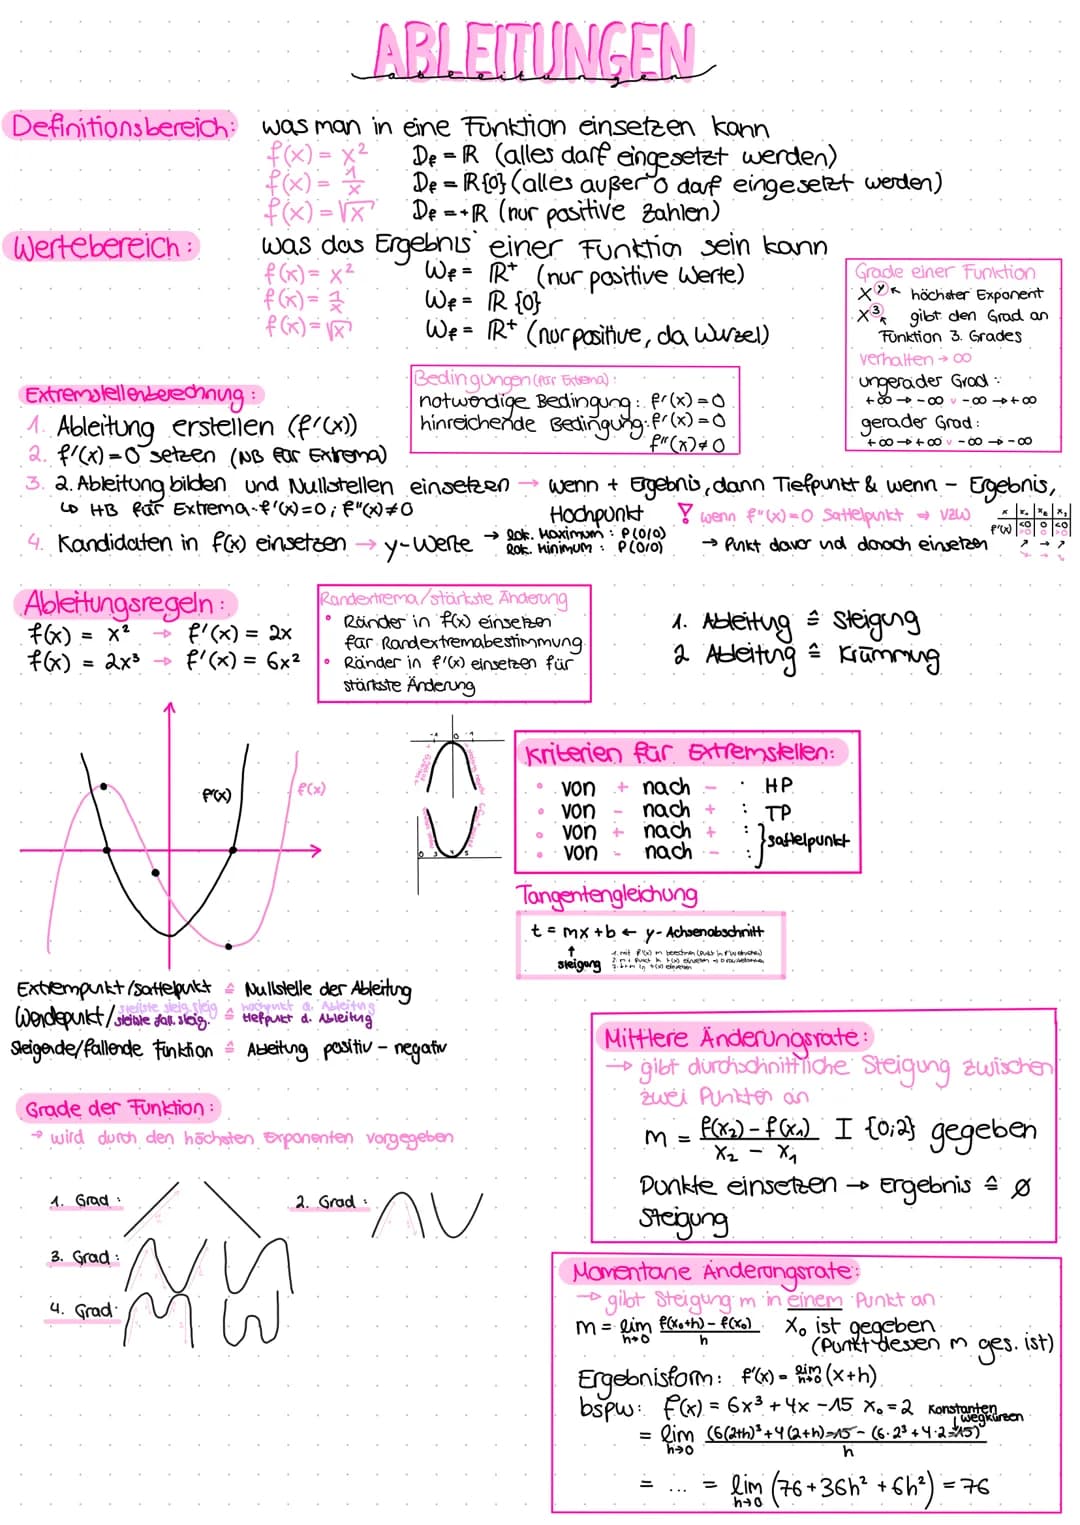 ABLEITUNGEN
ableitungen
Definitionsbereich: was man in eine Funktion einsetzen kann
f(x) = x² D_f = ℝ (alles darf eingesetzt werden)
f(x) = 1/x D_f = ℝ{0} (alles außer 0 darf eingesetzt werden)
f(x) = √x D_f = +ℝ (nur positive Zahlen)
Wertebereich: was das Ergebnis einer Funktion sein kann
f(x) = x² W_f = ℝ⁺ (nur positive Werte)
f(x) = 1/x W_f = ℝ {0}
f(x) = √x W_f = ℝ⁺ (nur positive, da Wurzel)
Grade einer Funktion
x^y ↖ höchster Exponent
x³ ↖ gibt den Grad an
Funktion 3. Grades
verhalten → ∞
ungerader Grad:
+∞ → -∞ v -∞ → +∞
gerader Grad:
+∞ → +∞ v -∞ → -∞
Extremstellenberechnung:
1. Ableitung erstellen (f'(x))
2. f'(x) = 0 setzen (NB für Extrema)
Bedingungen (für Extrema):
notwendige Bedingung: f'(x) = 0
hinreichende Bedingung: f'(x) = 0
f''(x) ≠ 0
3. 2. Ableitung bilden und Nullstellen einsetzen → wenn + Ergebnis, dann Tiefpunkt & wenn - Ergebnis,
↳ HB für Extrema - f'(x) = 0; f''(x) ≠ 0 Hochpunkt
! wenn f''(x) = 0 Sattelpunkt → VZW
→ Punkt davor und danach einsetzen
x | x₁ | x₂ | x₃
f'(x) | <0 | 0 | <0
4. Kandidaten in f(x) einsetzen → y-Werte → lok. Maximum: P(0/0)
lok. Minimum: P(0/0)
Ableitungsregeln:
f(x) = x² → f'(x) = 2x
f(x) = 2x³ → f'(x) = 6x²
Randextrema/stärkste Änderung
• Ränder in f(x) einsetzen
für Randextremabestimmung
• Ränder in f'(x) einsetzen für
stärkste Änderung
1. Ableitung ≙ Steigung
2 Ableitung ≙ Krümmung
f'(x)
f(x)
Kriterien für Extremstellen:
• von + nach - : HP
• von - nach + : TP
• von + nach + :
• von - nach - : } Sattelpunkt
Tangentengleichung
t = mx + b ← y-Achsenabschnitt
↑
steigung
Extrempunkt/Sattelpunkt ≙ Nullstelle der Ableitung
Wendepunkt/ steilste steig. steig ≙ hochpunkt d. Ableitung
steilste fall. steig. ≙ tiefpunkt d. Ableitung
Steigende/fallende Funktion ≙ Ableitung positiv - negativ
Grade der Funktion:
→ wird durch den höchsten Exponenten vorgegeben
1. Grad:
2. Grad:
3. Grad:
4. Grad:
Mittlere Änderungsrate:
→ gibt durchschnittliche Steigung zwischen
zwei Punkten an
m = f(x₂) - f(x₁) / x₂ - x₁ I {0;2} gegeben
Punkte einsetzen → Ergebnis ≙ ø
Steigung
Momentane Änderungsrate:
→ gibt Steigung m in einem Punkt an
m = lim h→0 f(x₀+h) - f(x₀) / h x₀ ist gegeben
(Punkt dessen m ges. ist)
Ergebnisform: f'(x) = lim h→0 (x+h)
bspw: f(x) = 6x³ + 4x - 15 x₀ = 2 Konstanten
wegkürzen
= lim h→0 (6(2+h)³ + 4(2+h) - 15 - (6·2³ + 4·2 - 15) / h
= ... = lim h→0 (76 + 36h² + 6h²) = 76